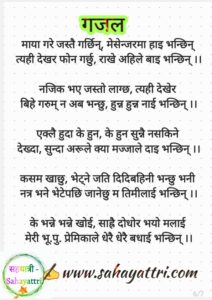 गजल
माया गरे जस्तै गर्छिन्, मेसेन्जरमा हाइ भन्छिन्
त्यही देखर फोन गर्छु, राखे अहिले बाइ भन्छिन् ।।
नजिक भए जस्तो लाग्छ, त्यही देखेर
बिहे गरुम् न अब भन्छु, हुन्न हुन्न नाई भन्छिन् ।।
एक्लै हुदा के हुन, के हुन सुन्नै नसकिने
देख्दा, सुन्दा अरूले क्या मज्जाले दाइ भन्छिन् ।।
कसम खाछु, भेट्ने जति दिदिबहिनी भन्छु भनी
नत्र भने भेटेपछि जानेछु म तिमीलाई भन्छिन् ।।
के भन्ने भन्ने खोई, साह्रै दोधोर भयो मलाई
मेरी भू.पु. प्रेमिकाले धेरै धेरै बधाई भन्छिन् ।।
सहयात्री -
Sahayattri
www.sahayattri.com
6/7